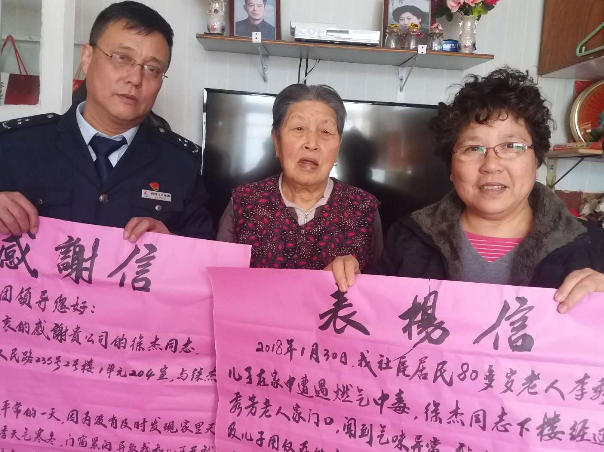 感謝信
团领导您好：
衷的感謝贵公司的徐杰同志.
人民路235号2号楼,1单元204室,与徐杰
平常的一天,因有没有及时发现家里天
春天气寒冬,门窗紧闭导致我和儿子
表揚信
2018年1月30日,我社区居民80多岁老人李秀
儿子在家中遭遇燃气中毒,徐杰同志下楼经过
秀芳老人家门口,闻到气味异常,
及儿子用